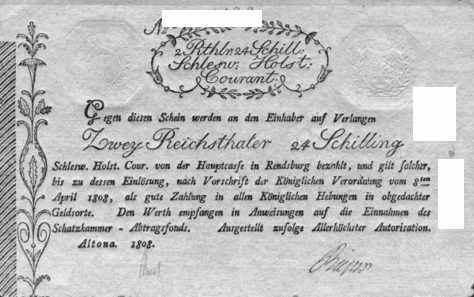 No
2 Rthlr. 24 Schill.
Schlesw. Holst.
Courant.
Gegen diesen Schein werden an den Einhaber auf Verlangen
Zwey Reichsthaler 24 Schilling
Schlesw. Holst. Cour. von der Hauptcasse in Rendsburg bezahlt, und gilt solcher,
bis zu dessen Einlösung, nach Vorschrift der Königlichen Verordnung vom 8ten
April 1808, als gute Zahlung in allen Königlichen Hebungen in obgedachter
Geldsorte. Den Werth empfangen in Anweisungen auf die Einnahmen des
Schatzkammer-Abtragsfonds. Ausgestellt zufolge Allerhöchster Autorisation.
Altona. 1808.